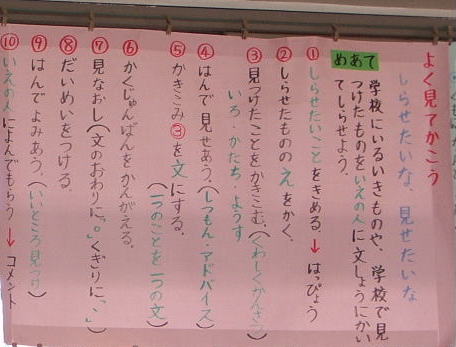 よく見てかこう
しらせたいな、見せたいな
めあて
学校にいるいきものや、学校で見
つけたものをいえの人に文しょうにかい
てしらせよう。
①しらせたいことをきめる。→はっぴょう
②しらせたもののえをかく。
いろ・かたち・ようす
③見つけたことをかきこむ。(くわしくかんさつ)
④はんで見せあう。(しつもん・アドバイス)
⑤かきこみ③を文にする。
(一つのことを一つの文)
⑥かくじゅんばんをかんがえる。
⑦見なおし(文のおわりに「。」くぎりに「、」)
⑧だいめいをつける。
⑨はんでよみあう。(いいところ見つけ)
⑩いえの人によんでもらう→コメント